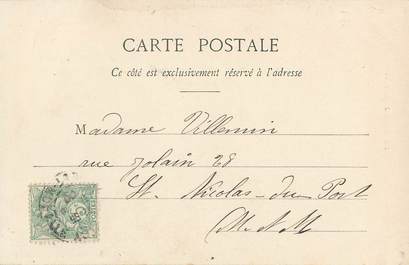 CARTE POSTALE
Ce côté est exclusivement réservé à l'adresse
Madame Villemin
rue Jolain 28
St. Nicolas-du-Port
M et M